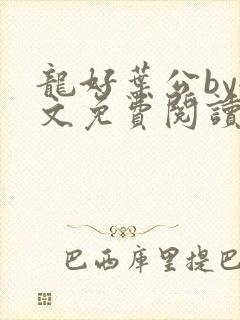 龍好葉公by
文免費閱讀
巴西庫里提巴